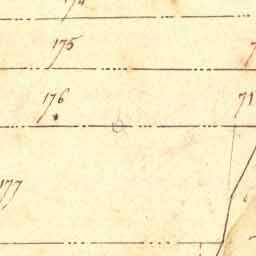 174
175
176
71
177